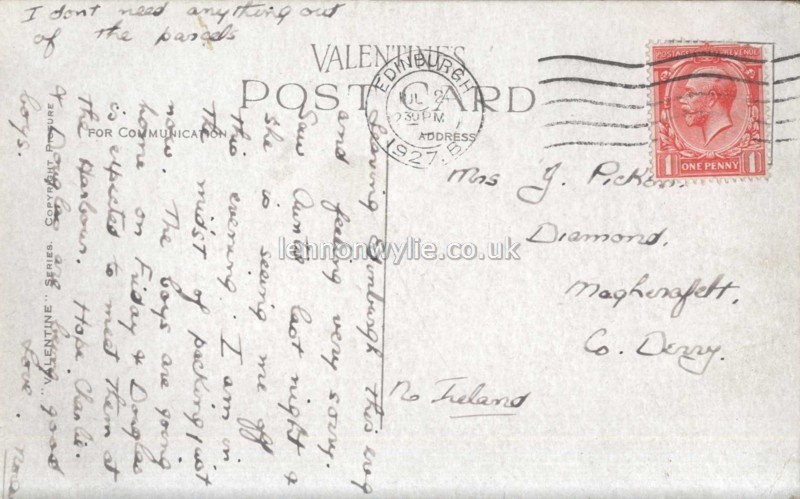 I dont need anything out
of the parcels
VALENTINE'S
POST CARD
FOR COMMUNICATION
ADDRESS
"VALENTINE" SERIES. COPYRIGHT PICTURE
EDINBURGH
JUL 2
2 30 PM
1927. B
POSTAGE REVENUE
ONE PENNY
1 1
Leaving Edinburgh this
and feeling very sorry.
Saw Aunt last night &
she is seeing me off
this evening. I am in
the midst of packing just
now. The boys are going
home on Friday & Douglas
is expected to meet them at
the Harbour. Hope Charlie.
& Douglas are being good
boys.
Love.
Mrs J. Picken.
Diamond,
Magherafelt,
Co. Derry.
N Ireland
lennonwylie.co.uk